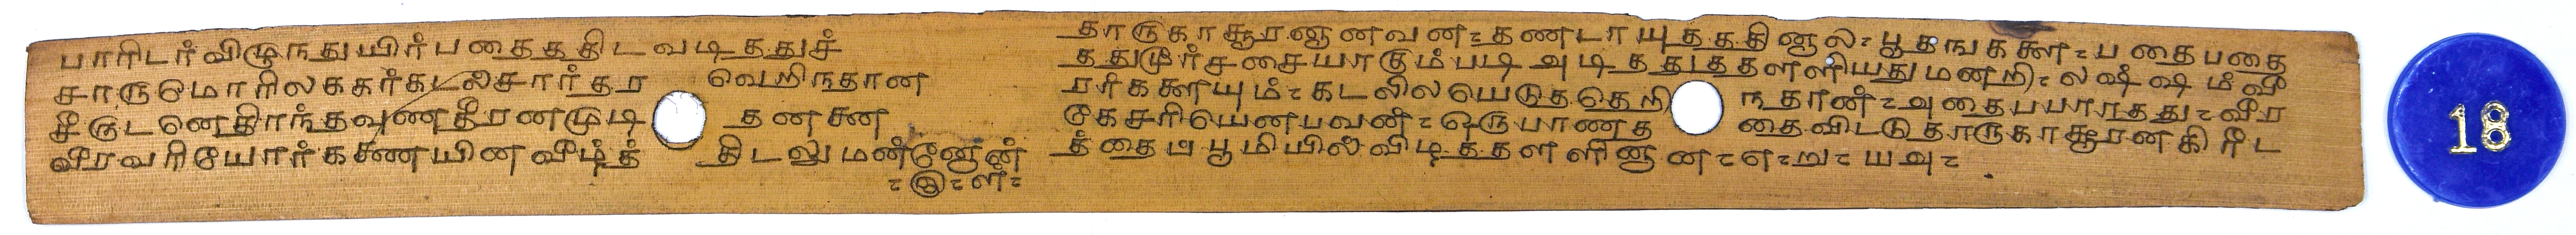 பாரிடர்விழுநதுயிர்பதைததிடவடிததுச்
சாருமொரிலககர்கடலசார்தர வெறிநதான
சீருடனெதிர்ந்தவுணதீரனமுடி தனகண
வீரவரியோர்கணையினவீழ்த் திடலுமன்னோன்
தாருகாசூரனானவன- தணடாயுதததினால- பூதஙகளை- பதைபதை
தது மூர்சசையாகும்படி அடிததுததளளியதுமனறி- லஷ்ஷம் வீ
ரர்களையும்- கடலிலயெடுததெறி ந்தான்- அதைபபாரதது- வீர
கேசரியெனபவன்- ஒருபாணத தைவிடடு தாருகாசூரனகிரீட
த்தை பூமியில்விழததளளினான-
18